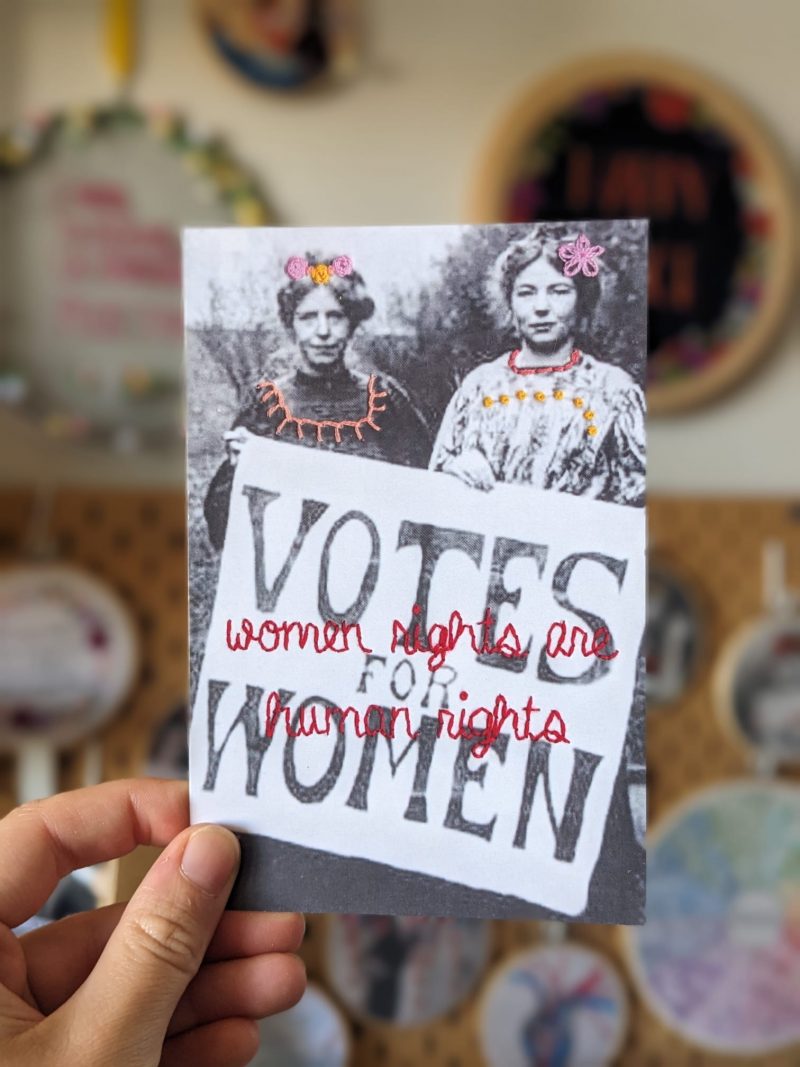 VOTES
women rights are
FOR
human rights
WOMEN